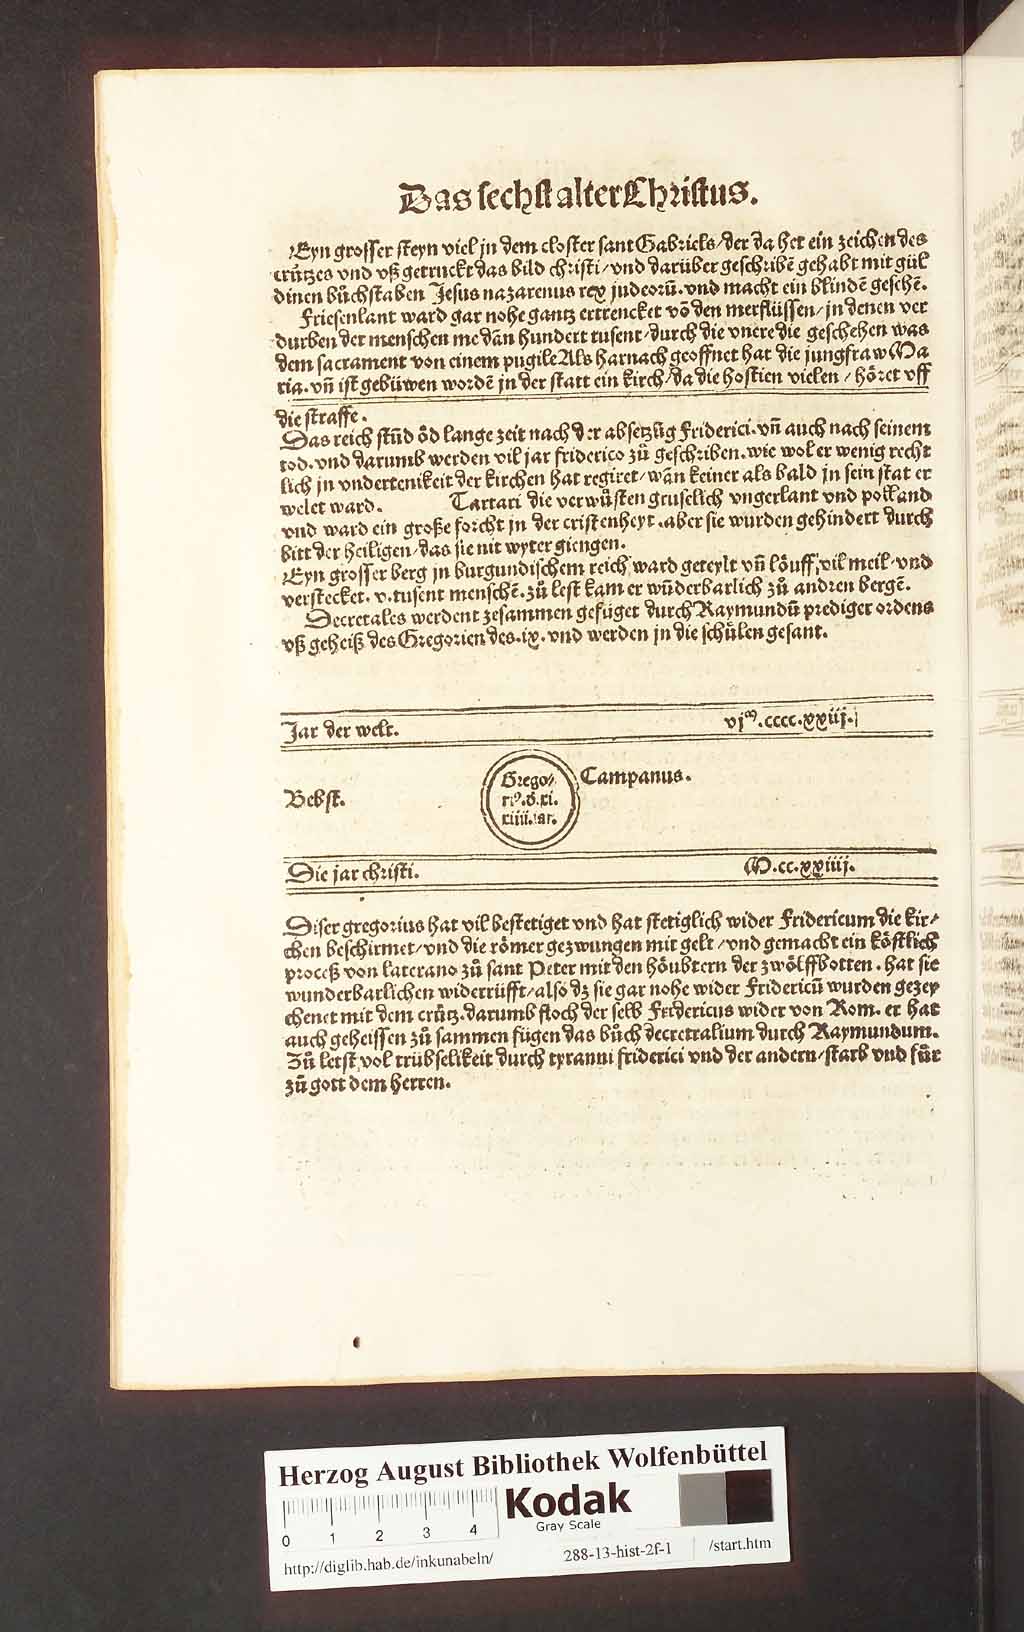 Das sechst alter Christus.
Eyn grosser steyn viel jn dem closter sant Gabriels/der da het ein zeichen des
crützes vnd vß getruckt das bild christi/vnd darüber geschribē gehabt mit gül
dinen bůchstaben Jesus nazarenus rex judeorū.vnd macht ein blindē gesehē.
Friesenlant ward gar nohe gantz ertrencket vō den merflüssen/jn denen ver
durben der menschen me dān hundert tusent/durch die vnere die geschehen was
dem sacrament von einem pugile Als harnach geoffnet hat die jungfraw Ma
ria.vn̄ ist gebüwen wordē jn der statt ein kirch/da die hostien vielen/höret vff
die straffe.
Das reich stūd öd lange zeit nach der absetzūg Friderici.vn̄ auch nach seinem
tod.vnd darumb werden vil jar friderico zů geschriben.wie wol er wenig recht
lich jn vndertenikeit der kirchen hat regiret/wān keiner als bald jn sein stat er
welet ward. Tartari die verwůsten gruselich vngerlant vnd polland
vnd ward ein große forcht jn der cristenheyt.aber sie wurden gehindert durch
bitt der heiligen/das sie nit wyter giengen.
Eyn grosser berg jn burgundischem reich ward geteylt vn̄ löuff vil meil/vnd
verstecket.v.tusent menschē.zů lest kam er wūderbarlich zů andren bergē.
Decretales werdent zesammen gefüget durch Raymundū prediger ordens
vß geheiß des Gregorien des.ix.vnd werden jn die schůlen gesant.
Jar der welt. vjᵐ.cccc.xxiij.
Bebst.
Grego/
riꝰ.ď.xi.
xiiii.iar.
Campanus.
Die jar christi. M.cc.xxiiij.
Diser gregorius hat vil bestetiget vnd hat stetiglich wider Fridericum die kir/
chen beschirmet/vnd die römer gezwungen mit gelt/vnd gemacht ein köstlich
proceß von laterano zů sant Peter mit den höubtern der zwölffbotten.hat sie
wunderbarlichen widerrüfft/also dz sie gar nohe wider Fridericū wurden gezey
chenet mit dem crütz.darumb floch der selb Fridericus wider von Rom.er hat
auch geheissen zů sammen fügen das bůch decretralium durch Raymundum.
Zů letst vol trübselikeit durch tyranni friderici vnd der andern/starb vnd fůr
zů gott dem herren.
Herzog August Bibliothek Wolfenbüttel
Kodak
Gray Scale
0 1 2 3 4
http://diglib.hab.de/inkunabeln/ 288-13-hist-2f-1 /start.htm